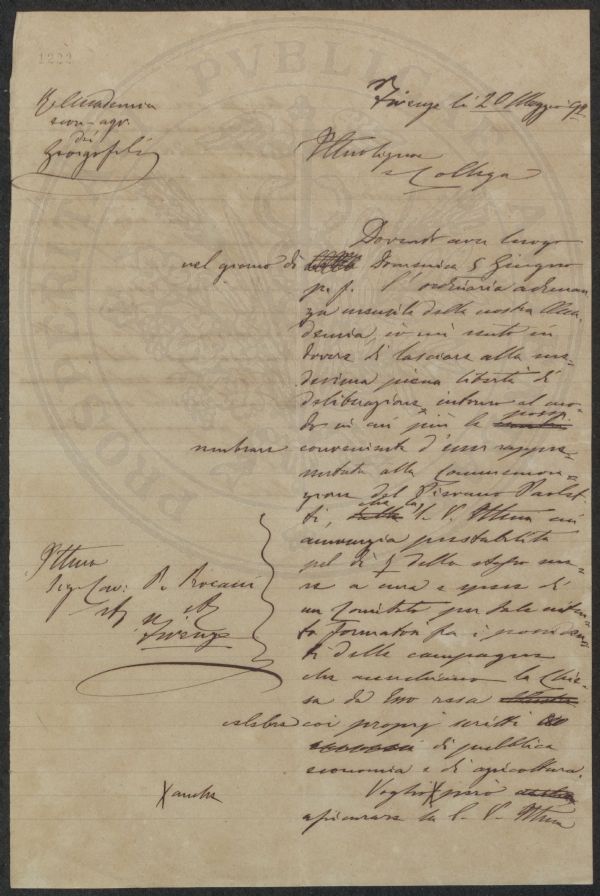 1222
R. Accademia
econ-agr.
dei
Georgofili
Firenze li 20 Maggio 92
Illmo Signor
Collega
Dovendo aver luogo
nel giorno di Domenica 5 Giugno
p. f. l'ordinaria adunan
za mensile della nostra Acca-
demia, io mi sento in
dovere di lasciare alla me-
desima piena libertà di
deliberazione intorno al mo-
do in cui più le possa
sembrare conveniente d'esser rappre-
sentata alla Commemora-
zione del Pievano Paolet-
ti, che la S. V. Illma mi
annunzia
pel dì della stesso me-
se a cura e spese di
un Comitato per tale inten-
to formatosi fra i possiden
ti delle campagne
che accerchiano la Chie-
sa da Esso resa
celebre coi proprj scritti
di pubblica
economia e di agricoltura.
Voglio però
X anche
assicurare la S. V. Illma
Illmo
Sig. Cav: P.
Firenze
PROSPERITATI PUBLICAE